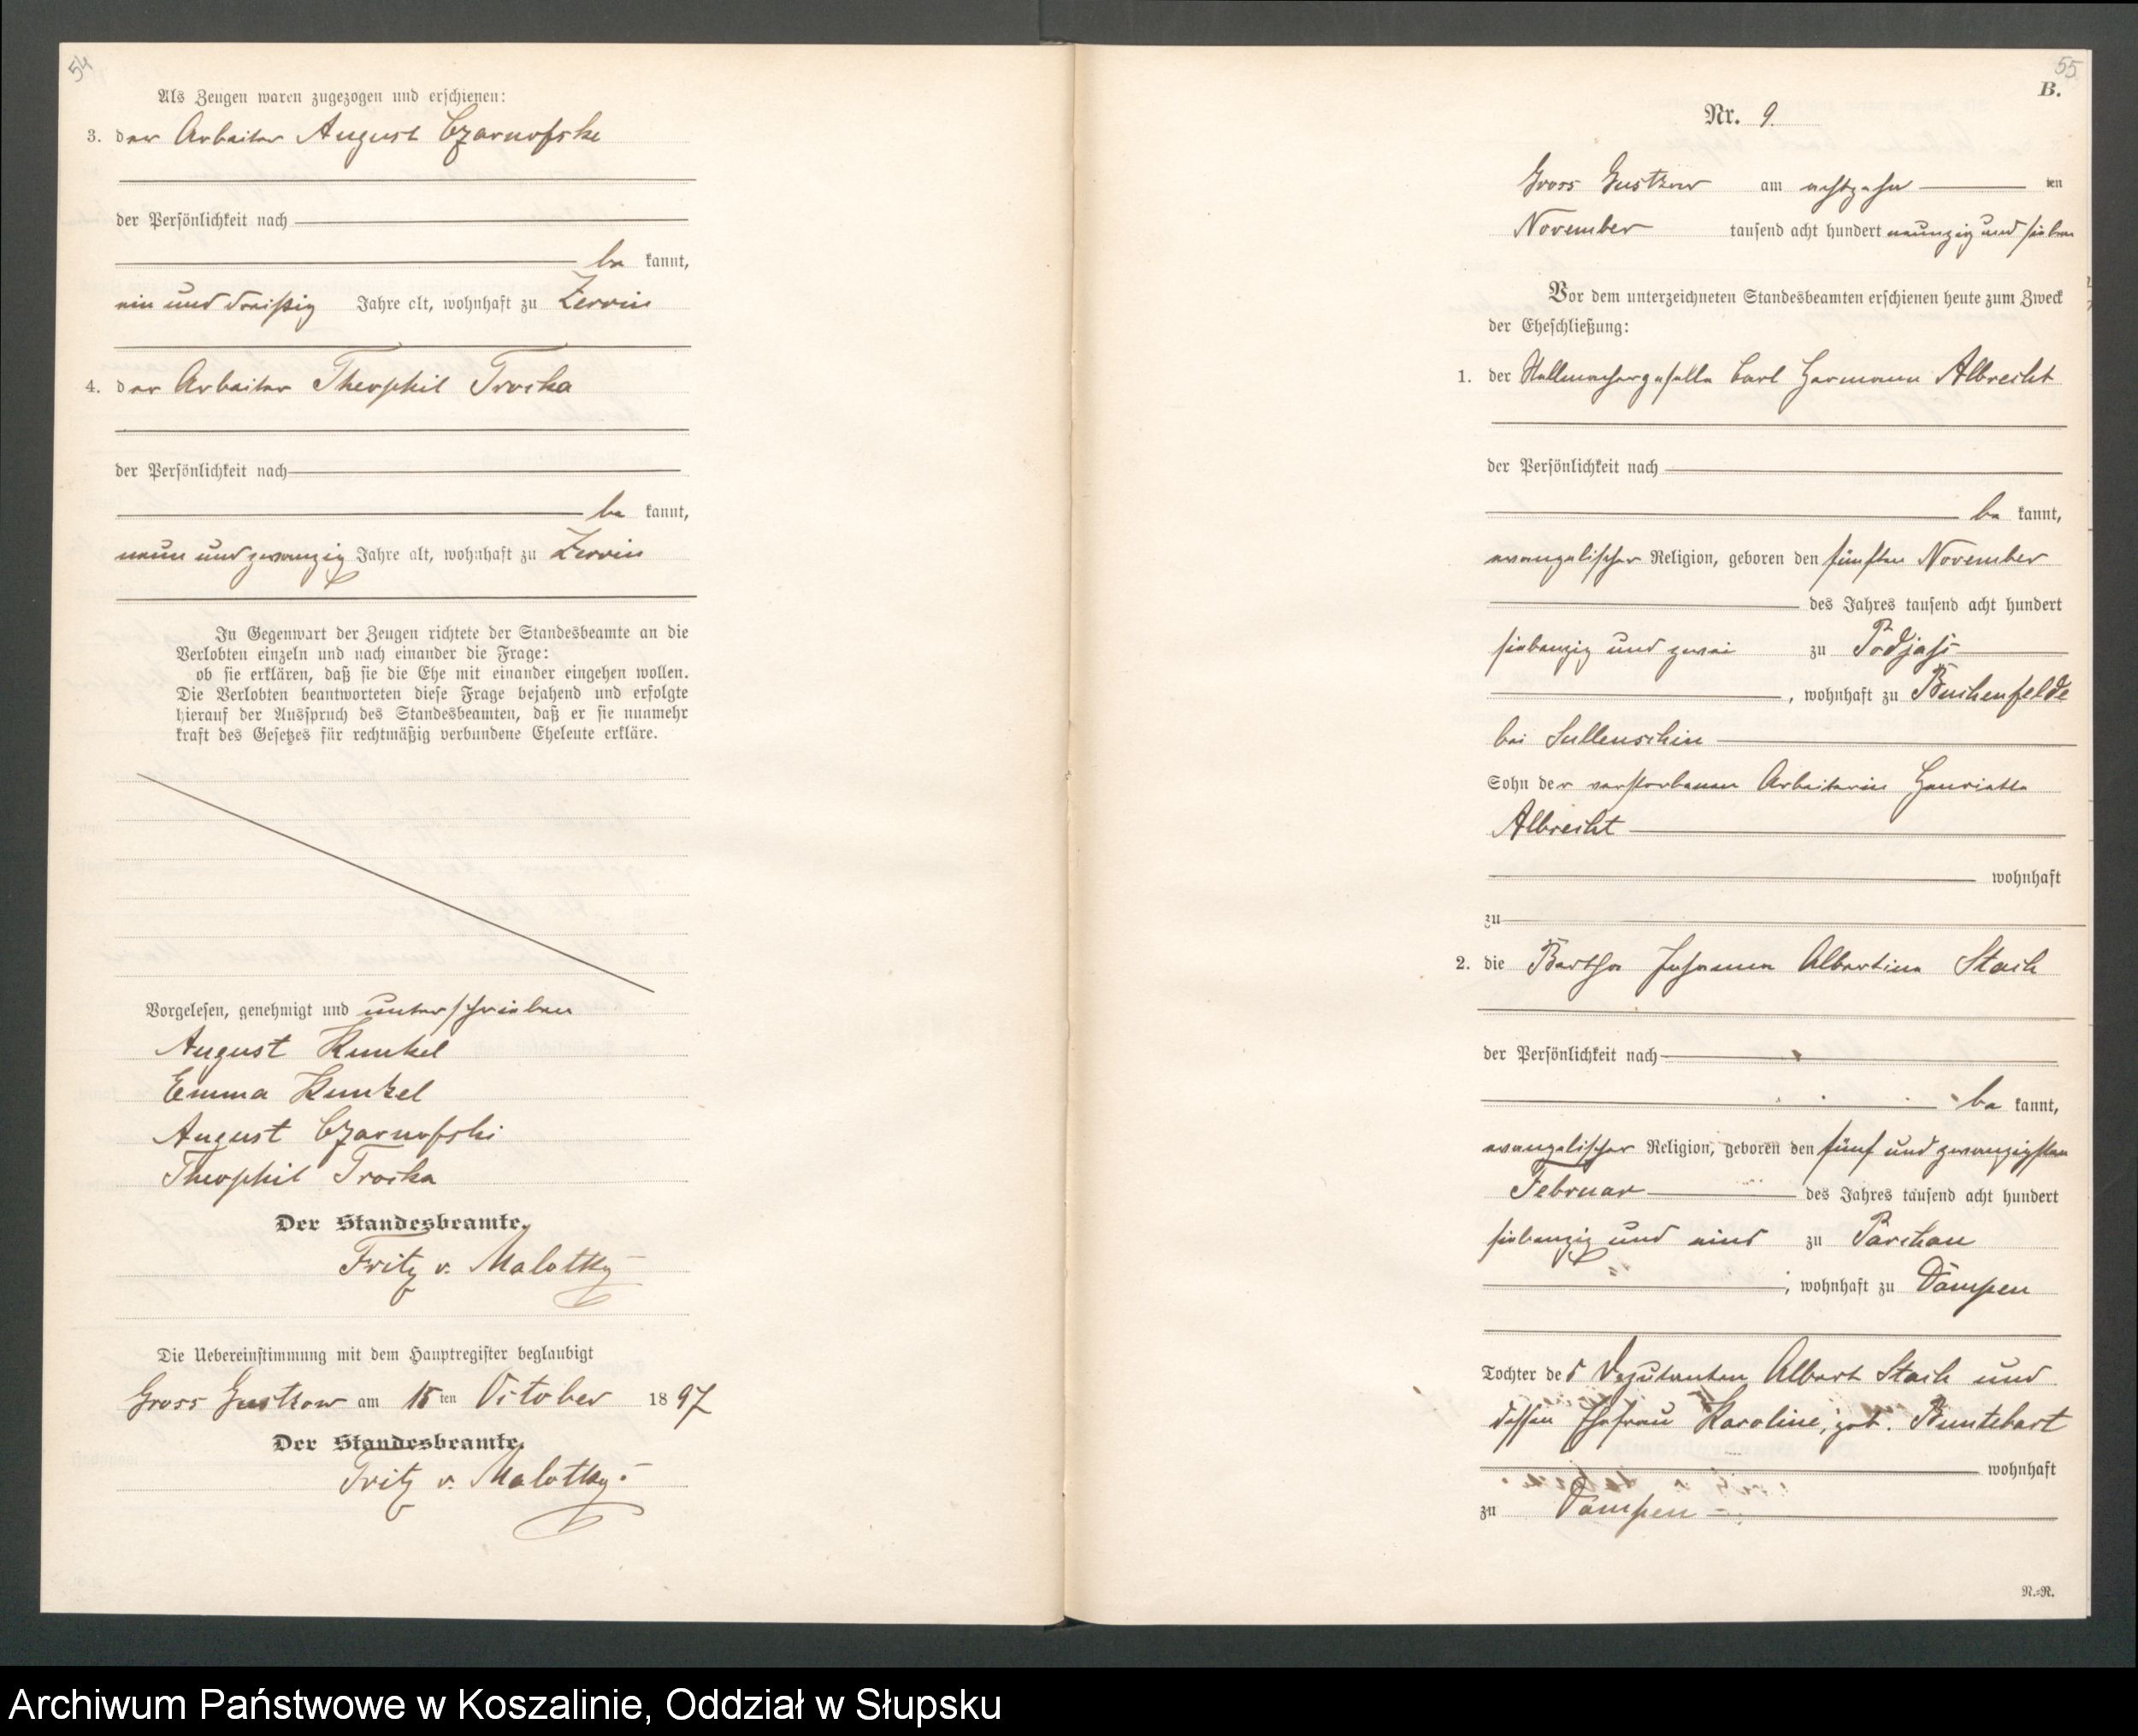 54
Als Zeugen waren zugezogen und erschienen:
3. der Arbeiter August Czarnofske
der Persönlichkeit nach
be kannt,
ein und dreißig Jahre alt, wohnhaft zu Zerrin
4. der Arbeiter Theophil Troska
der Persönlichkeit nach
be kannt,
neun und zwanzig Jahre alt, wohnhaft zu Zerrin
In Gegenwart der Zeugen richtete der Standesbeamte an die
Verlobten einzeln und nach einander die Frage:
ob sie erklären, daß sie die Ehe mit einander eingehen wollen.
Die Verlobten beantworteten diese Frage bejahend und erfolgte
hierauf der Ausspruch des Standesbeamten, daß er sie nunmehr
kraft des Gesetzes für rechtmäßig verbundene Eheleute erkläre.
Vorgelesen, genehmigt und unterschrieben
August Kunkel
Emma Kunkel
August Czarnofski
Theophil Troska
Der Standesbeamte.
Fritz v. Malottky
Die Uebereinstimmung mit dem Hauptregister beglaubigt
Gross Gustkow am 15 ten October 1897
Der Standesbeamte.
Fritz v. Malottky.
55
B.
Nr. 9.
Gross Gustkow am achtzehn ten
November tausend acht hundert neunzig und sieben
Vor dem unterzeichneten Standesbeamten erschienen heute zum Zweck
der Eheschließung:
1. der Stellmachergeselle Carl Hermann Albrecht
der Persönlichkeit nach
be kannt,
evangelischer Religion, geboren den fünften November
des Jahres tausend acht hundert
siebenzig und zwei zu Podjass
, wohnhaft zu Buchenfelde
bei Sullenschin
Sohn der verstorbenen Arbeiterin Henriette
Albrecht
wohnhaft
zu
2. die Bertha Johanna Albertine Stach
der Persönlichkeit nach
be kannt,
evangelischer Religion, geboren den fünf und zwanzigsten
Februar des Jahres tausend acht hundert
siebenzig und eins zu Parchau
, wohnhaft zu Dampen
Tochter des Deputanten Albert Stach und
dessen Ehefrau Karoline, geb. Buntebart
wohnhaft
zu Dampen
N.=R.
Archiwum Państwowe w Koszalinie, Oddział w Słupsku